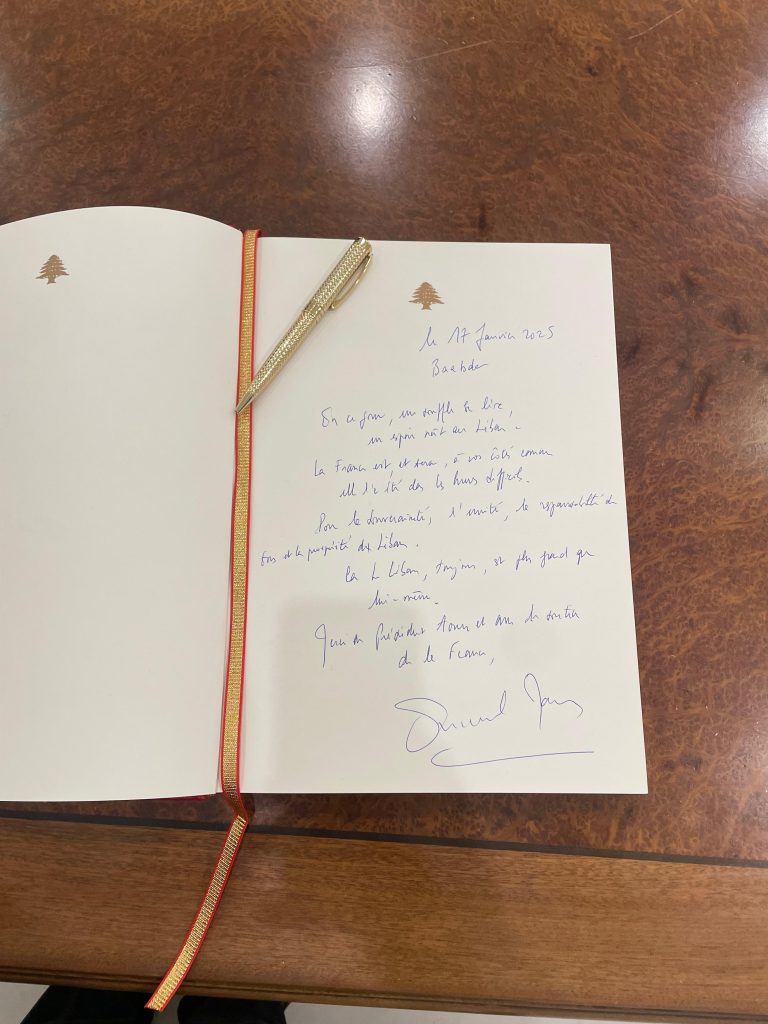 le 17 Janvier 2025
Baabda
En ce jour, un souffle se lève,
un espoir naît au Liban.
La France est, et sera, à vos côtés comme
elle l'a été dans les heures difficiles.
Pour la souveraineté, l'unité, la responsabilité de
tous et la prospérité du Liban.
Liban, toujours, est plus grand que
lui-même.
Merci au Président Aoun et avec le soutien
de la France,